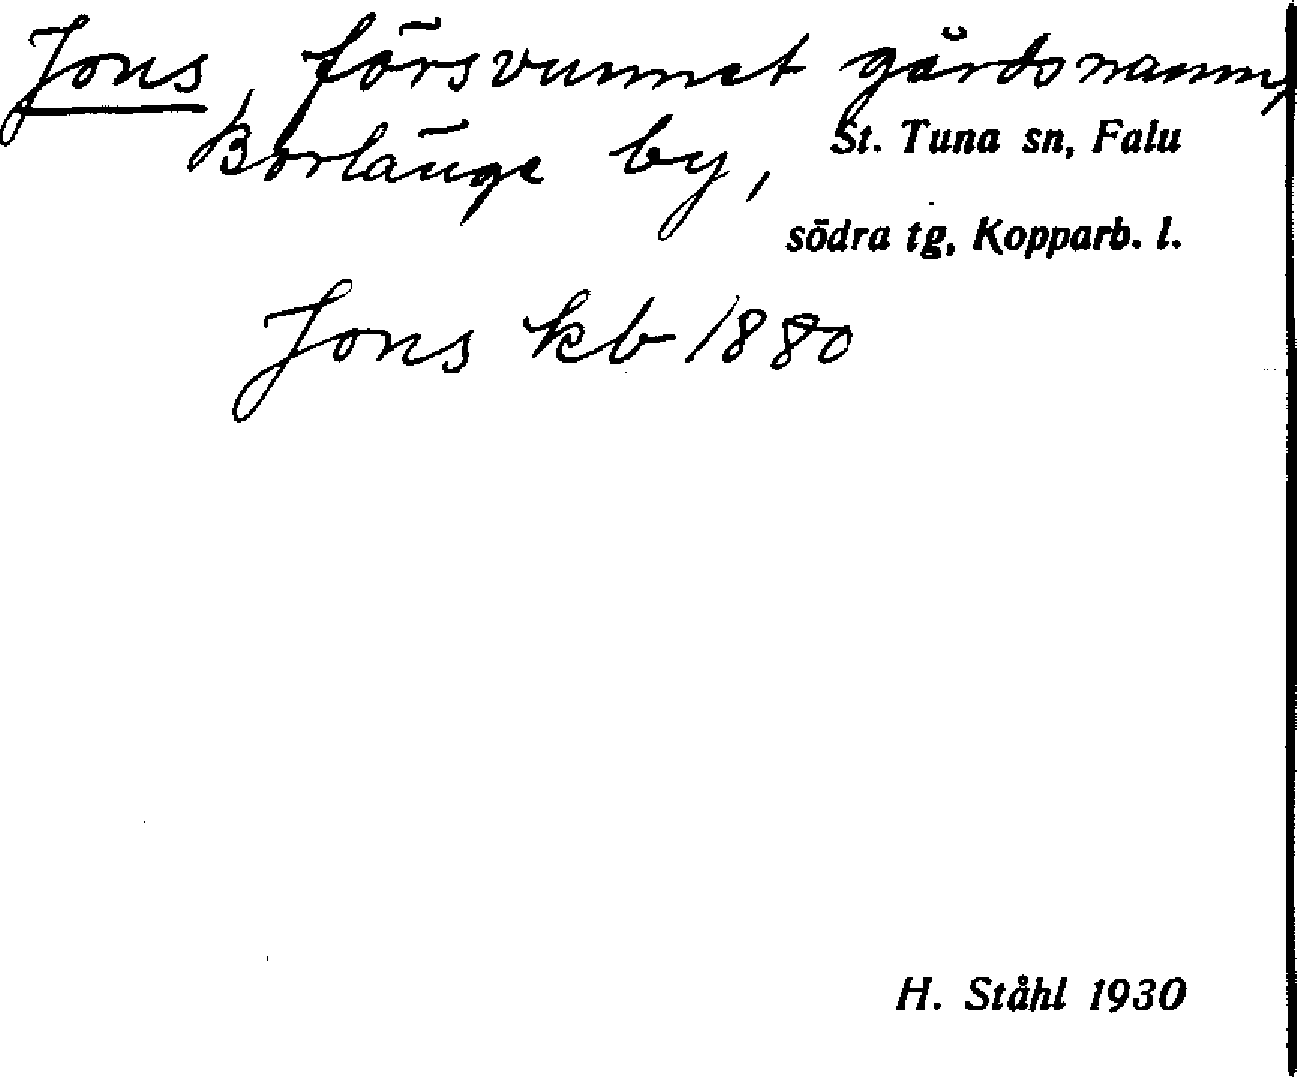 Jons, försvunnet gårdsnamn,
Borlänge by, St. Tuna sn, Falu
södra tg, Kopparb. l.
Jons kb 1880
H. Ståhl 1930